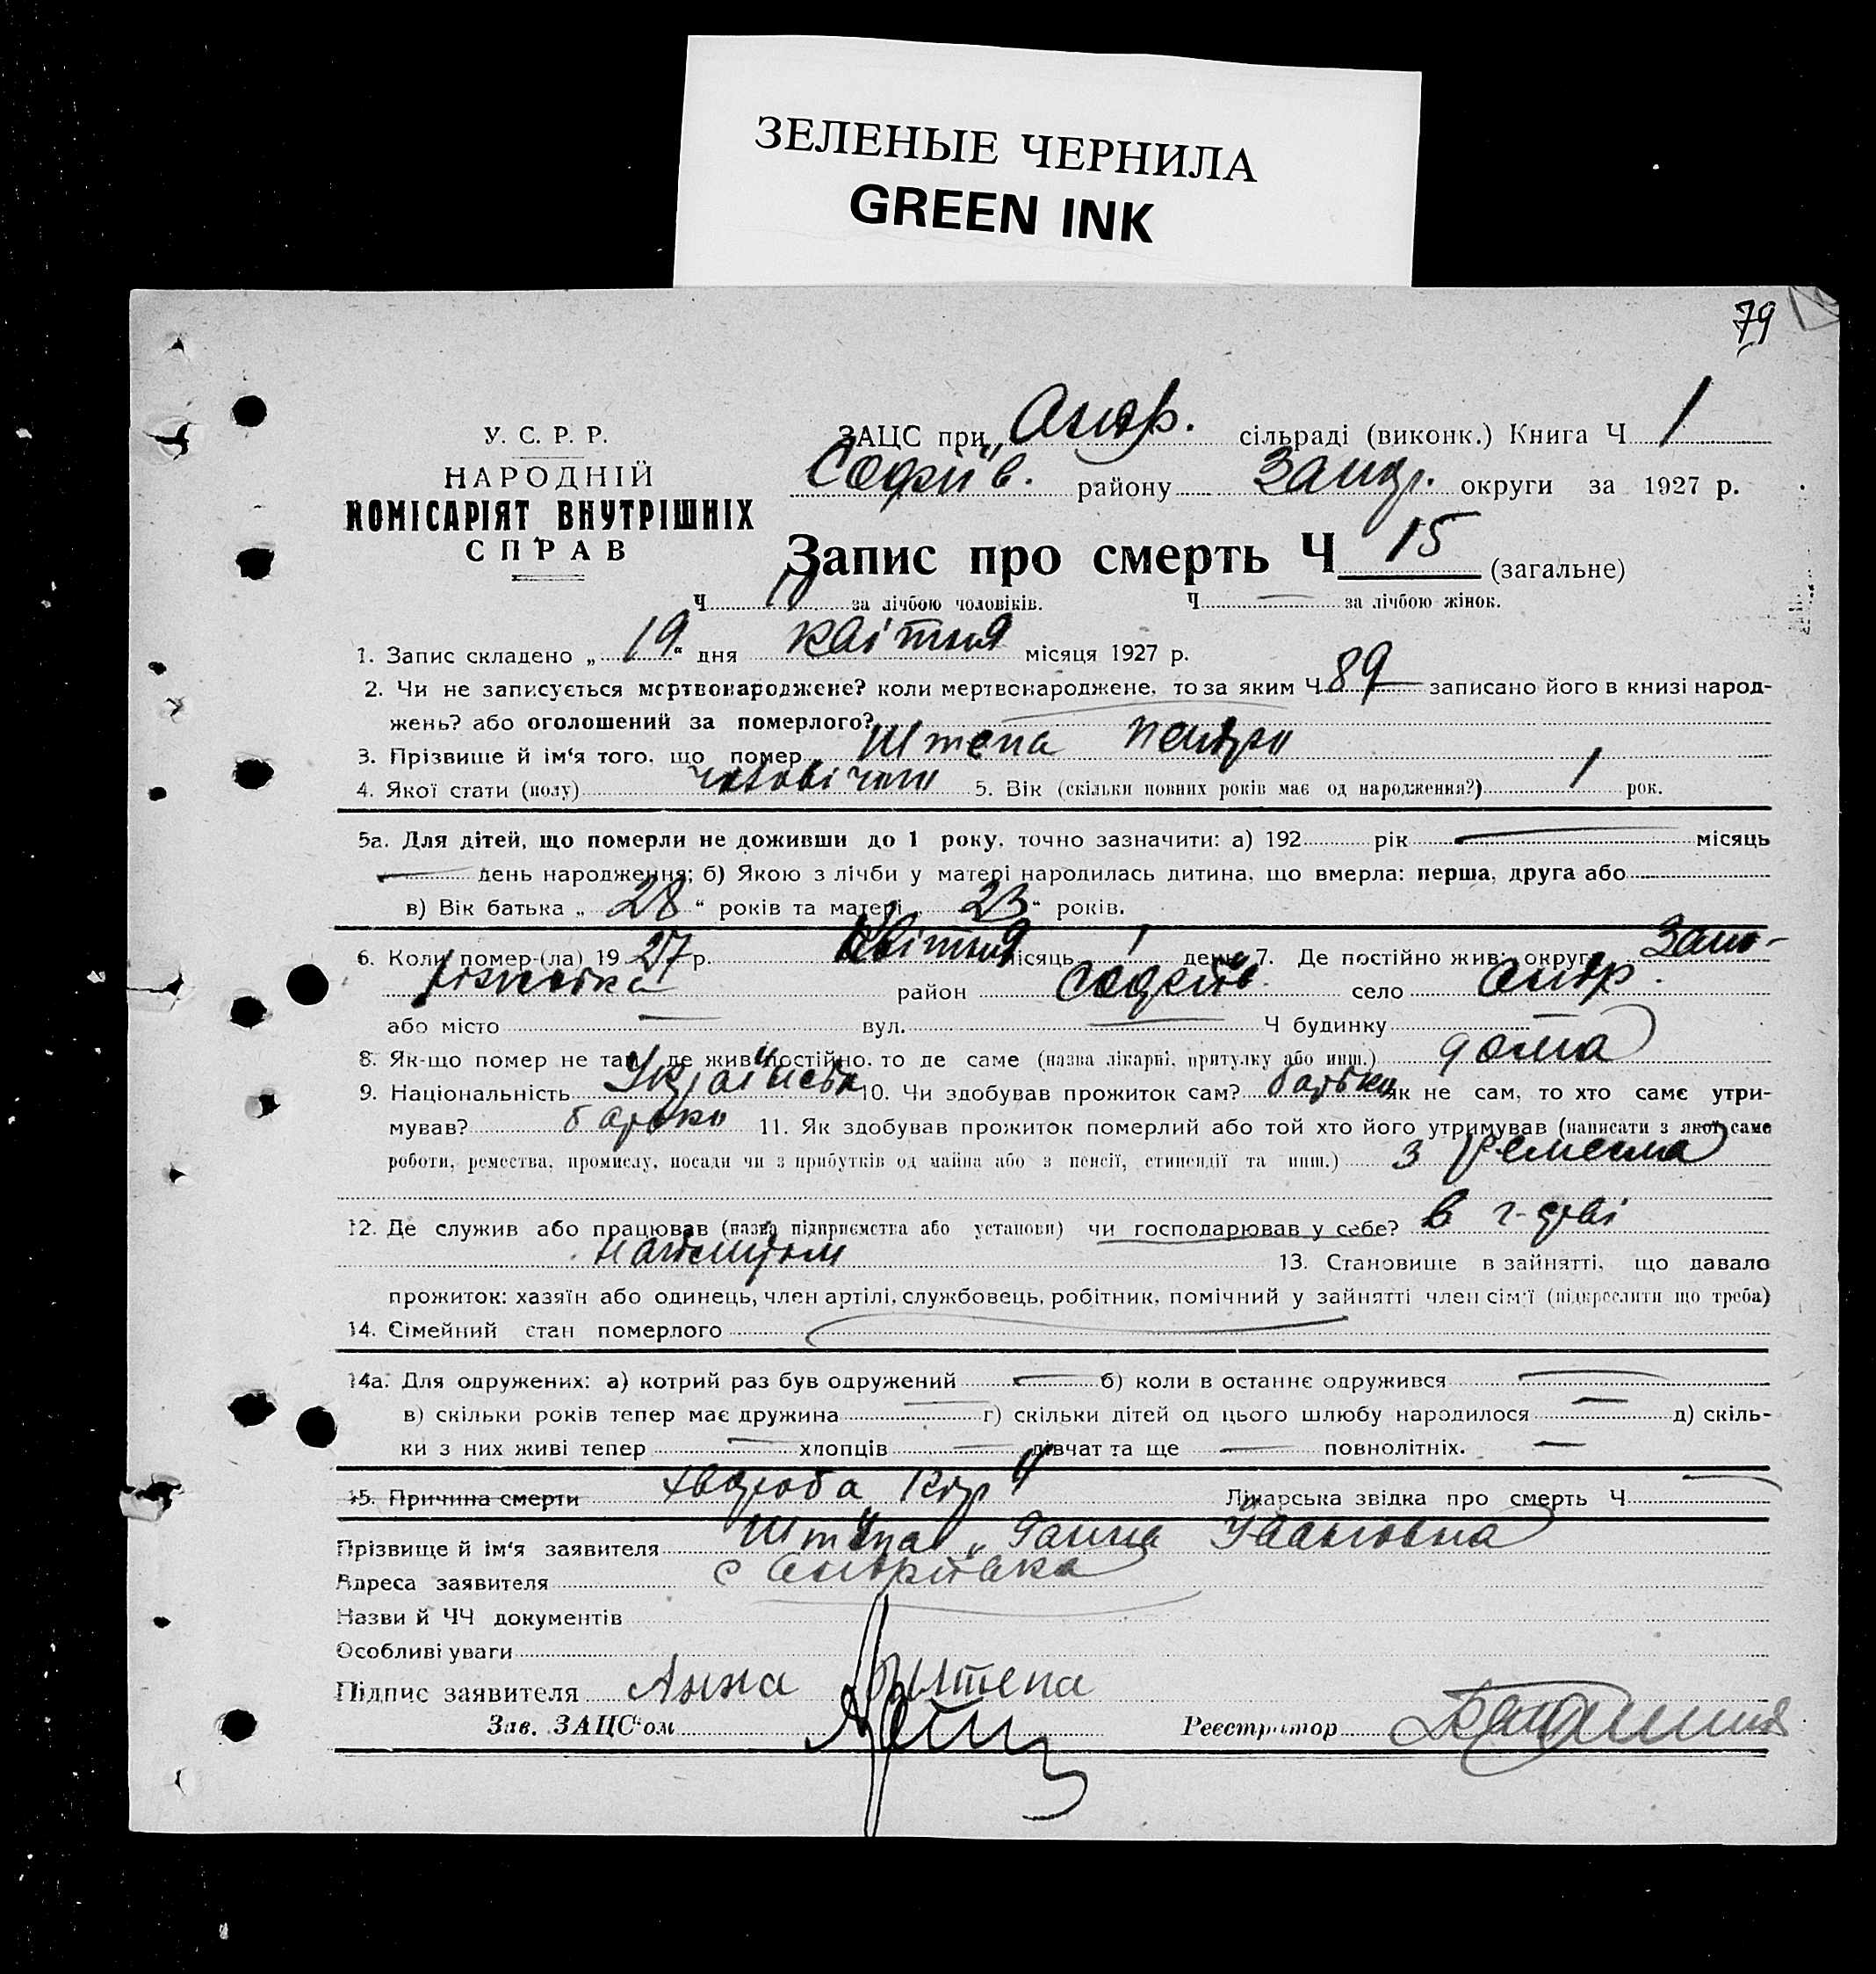 ЗЕЛЕНЫЕ ЧЕРНИЛА
GREEN INK
79
У. С. Р. Р.
НАРОДНІЙ
КОМІСАРІЯТ ВНУТРІШНІХ
СПРАВ
ЗАЦС при Андр. сільраді (виконк.) Книга Ч 1
Софіїв. району Запор. округи за 1927 р.
Запис про смерть Ч 15 (загальне)
Ч 10 за лічбою чоловіків. Ч — за лічбою жінок.
1. Запис складено „19“ дня квітня місяця 1927 р.
2. Чи не записується мертвонароджене? коли мертвонароджене, то за яким Ч 89 записано його в книзі народ-
жень? або оголошений за померлого?
3. Прізвище й ім'я того, що помер Штепа
4. Якої стати (полу) 5. Вік (скільки повних років має од народження?) 1 рок.
5а. Для дітей, що померли не доживши до 1 року, точно зазначити: а) 192 рік — місяць
— день народження; б) Якою з лічби у матері народилась дитина, що вмерла: перша, друга або
в) Вік батька „28“ років та матері „23“ років.
6. Коли помер-(ла) 1927 р. Квітня місяць 1 день 7. Де постійно жив: округ Запо-
район Софіїв. село Андр.
або місто — вул. — Ч будинку —
8. Як-що помер не там, де жив постійно, то де саме (назва лікарні, притулку або инш.) дома
9. Національність Україньськ 10. Чи здобував прожиток сам? батько як не сам, то хто саме утри-
мував? батько 11. Як здобував прожиток померлий або той хто його утримував (написати з якої саме
роботи, ремества, промислу, посади чи з прибутків од майна або з пенсії, стипендії та инш.) з ремесла
12. Де служив або працював (назва підприємства або установи) чи господарював у себе? в
13. Становище в зайнятті, що давало
прожиток: хазяїн або одинець, член артілі, службовець, робітник, помічний у зайнятті член сім'ї (підкреслити що треба)
14. Сімейний стан померлого —
14а. Для одружених: а) котрий раз був одружений — б) коли в останнє одружився —
в) скільки років тепер має дружина — г) скільки дітей од цього шлюбу народилося — д) скіль-
ки з них живі тепер — хлопців — дівчат та ще — повнолітніх. —
15. Причина смерти хвороба Кір Лікарська звідка про смерть Ч —
Прізвище й ім'я заявителя Штепа Ганна Ивановна
Адреса заявителя с Андрівка
Назви й ЧЧ документів
Особливі уваги
Підпис заявителя Анна Штепа
Зав. ЗАЦС'ом
Реєстратор